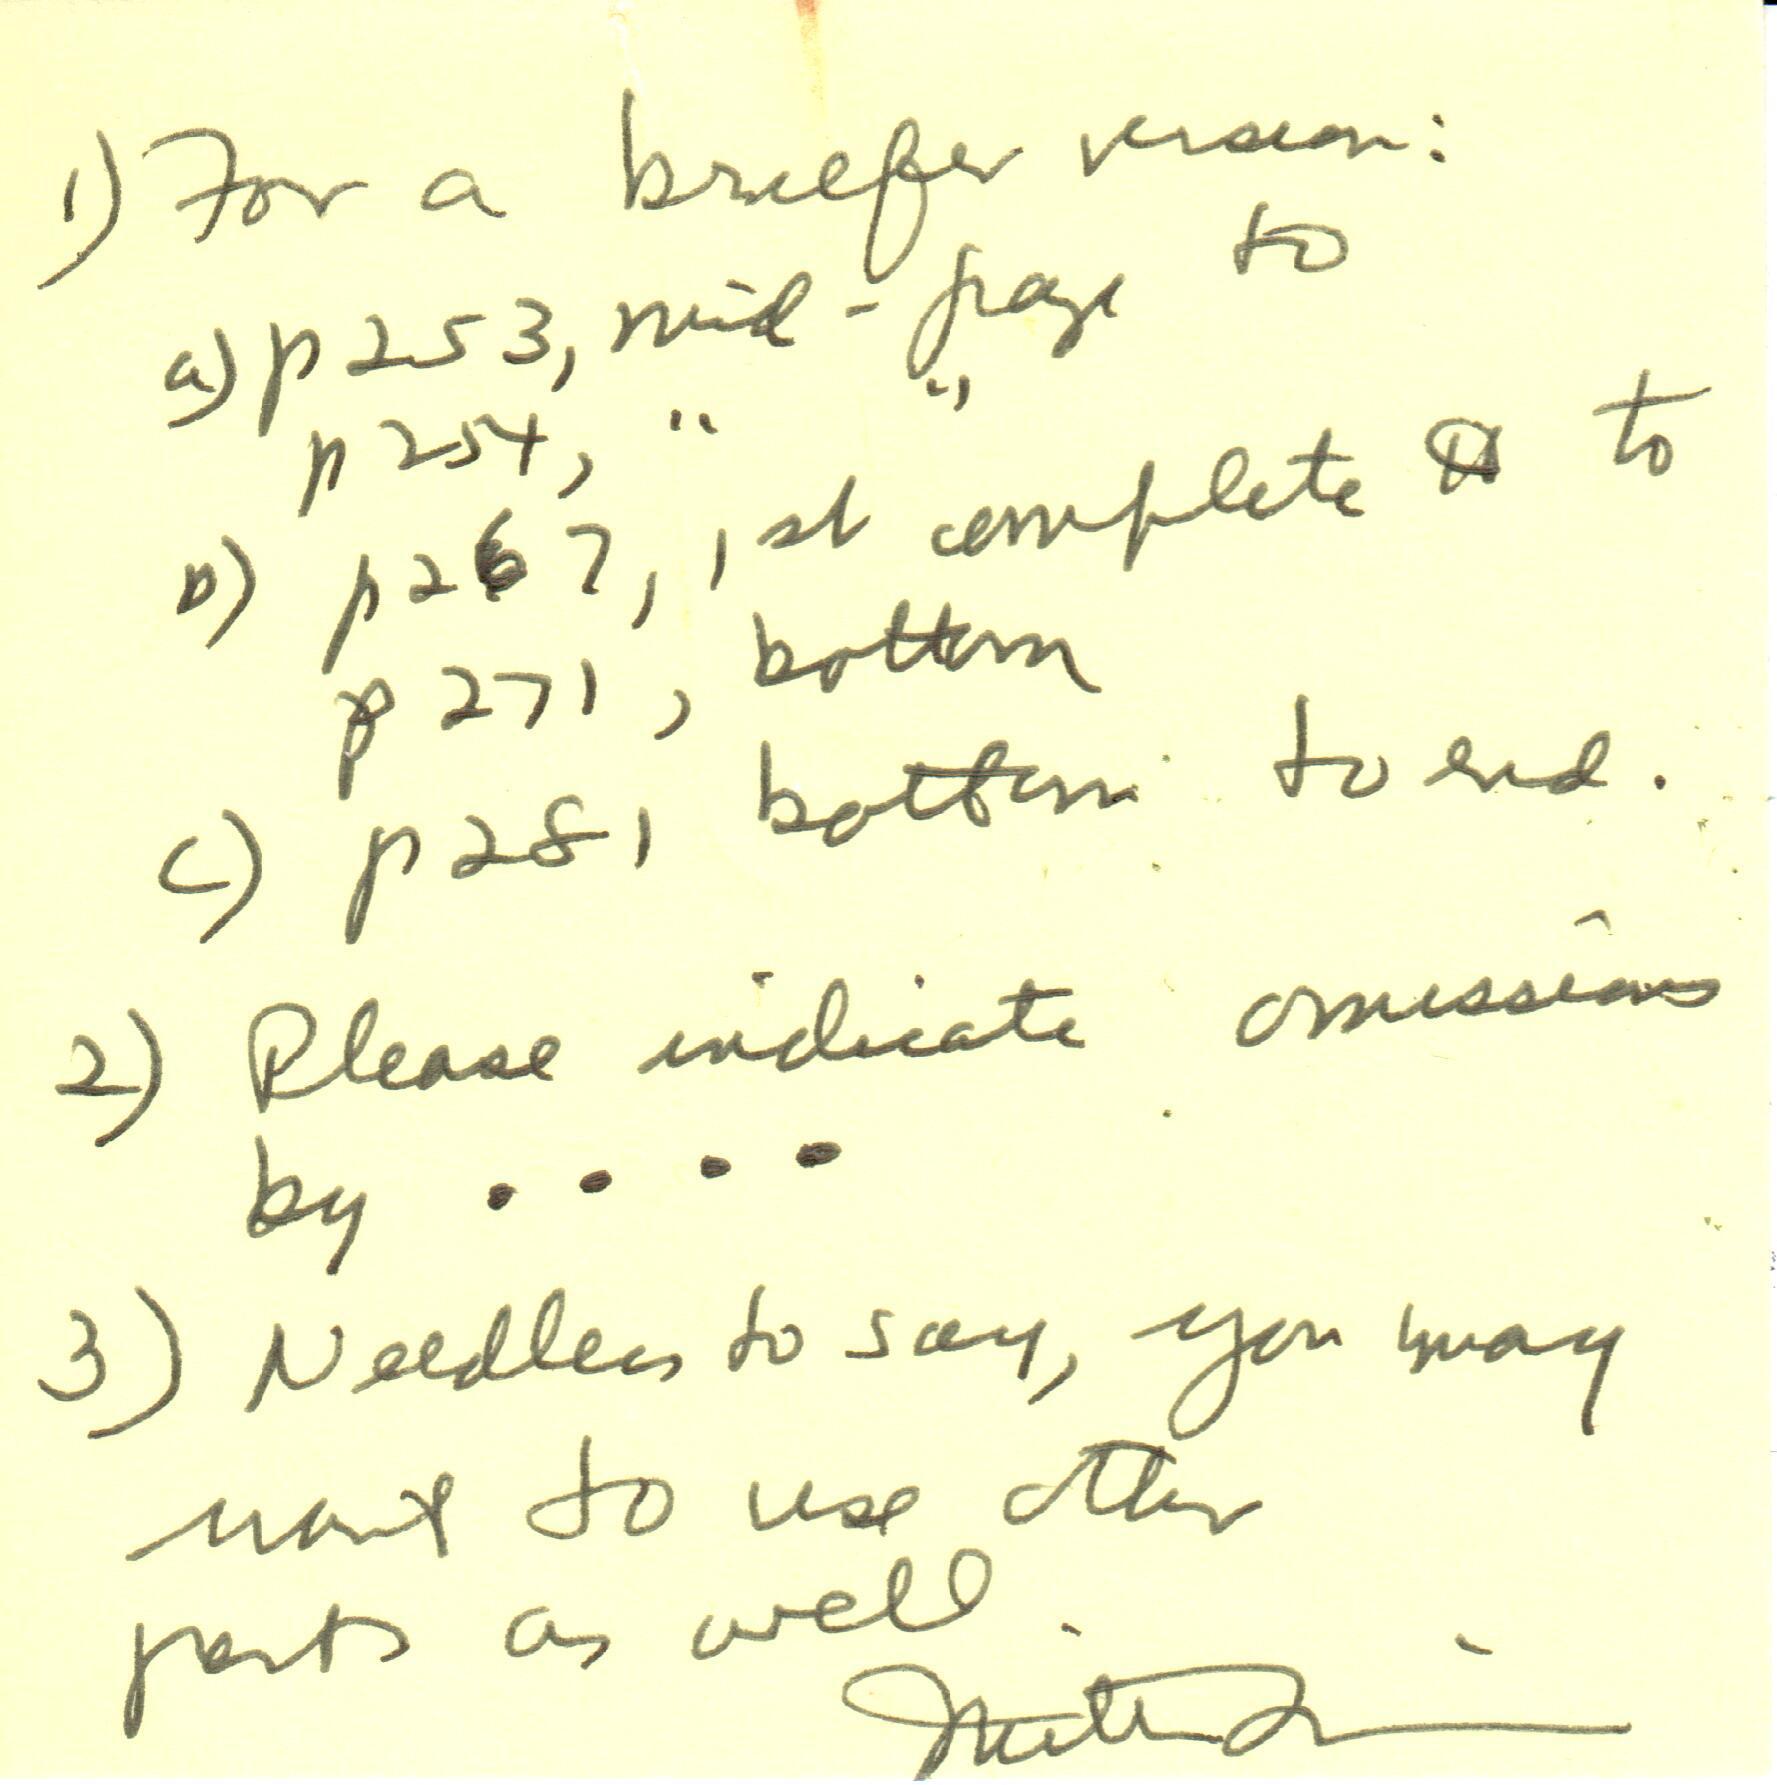 1) For a briefer version:
a) p 253, mid-page to
p 254, " "
b) p 267, 1st complete ¶ to
p 271, bottom
c) p 281 bottom to end.
2) Please indicate omissions
by ....
3) Needless to say, you may
want to use other
parts as well.